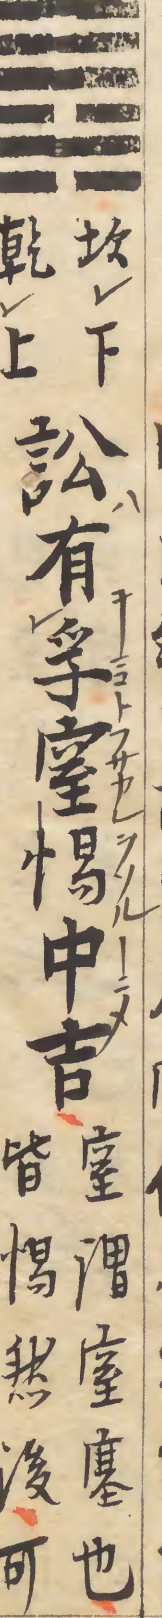 坎下
乾上
訟有孚窒惕中吉
窒謂窒塞也
皆惕然後可